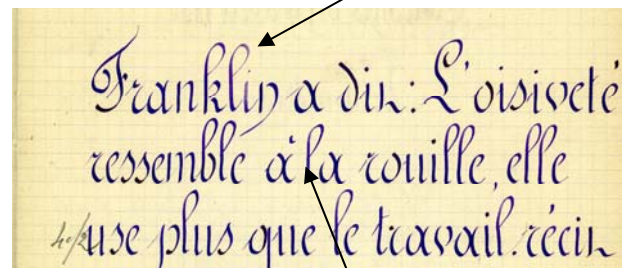 Franklin a dit: L'oisiveté
ressemble à la rouille, elle
use plus que le travail. récit